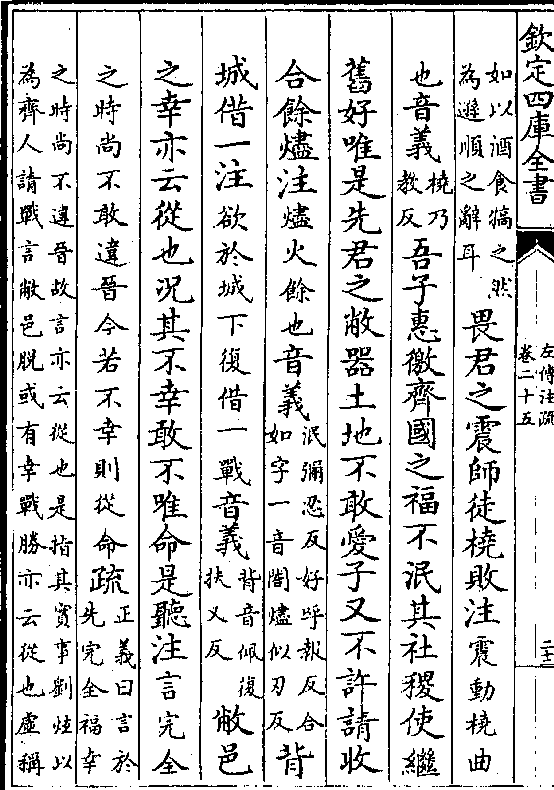 欽定四庫全書
左傳注疏
卷二十五
二十三
如以酒食犒之然
為遜順之辭耳
畏君之震師徒橈敗注震動橈曲
也音義橈乃
教反
吾子惠徼齊國之福不泯其社稷使繼
舊好唯是先君之敝器土地不敢愛子又不許請收
合餘燼注燼火餘也音義泯彌忍反好呼報反合
如字一音閤燼似刃反
背
城借一注欲於城下復借一戰音義背音佩復
扶又反
敝邑
之幸亦云從也況其不幸敢不唯命是聽注言完全
之時尚不敢違晉今若不幸則從命疏正義曰言於
先完全福幸
之時尚不違晉故言亦云從也是指其實事劉炫以
為齊人請戰言敝邑脱或有幸戰勝亦云從也虛稱